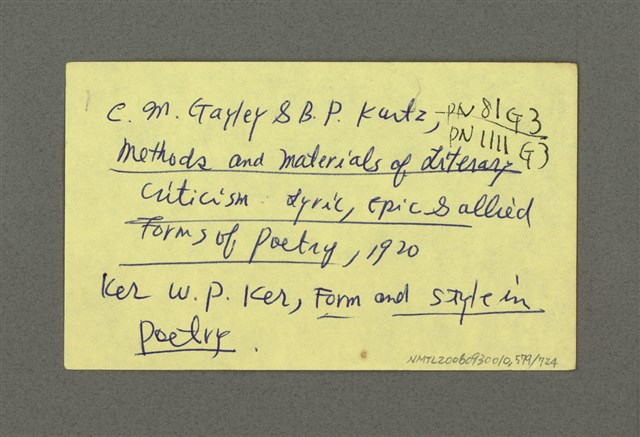 C. M. Gayley & B. P. Kurtz, PN 81 G3
PN 1111 G3
Methods and Materials of Literary
Criticism Lyric, Epic & allied
Forms of Poetry, 1920
Ker W. P. Ker, Form and Style in
Poetry.
NMTL20060930010,579/724